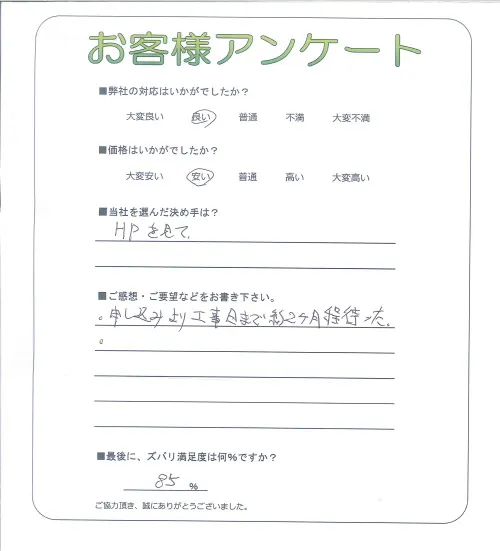 お客様アンケート
■弊社の対応はいかがでしたか？
大変良い 良い 普通 不満 大変不満
■価格はいかがでしたか？
大変安い 安い 普通 高い 大変高い
■当社を選んだ決め手は？
HPを見て
■ご感想・ご要望などをお書き下さい。
。申し込みより工事日まで約2ヶ月程待った。
。
■最後に、ズバリ満足度は何%ですか？
85 %
ご協力頂き、誠にありがとうございました。